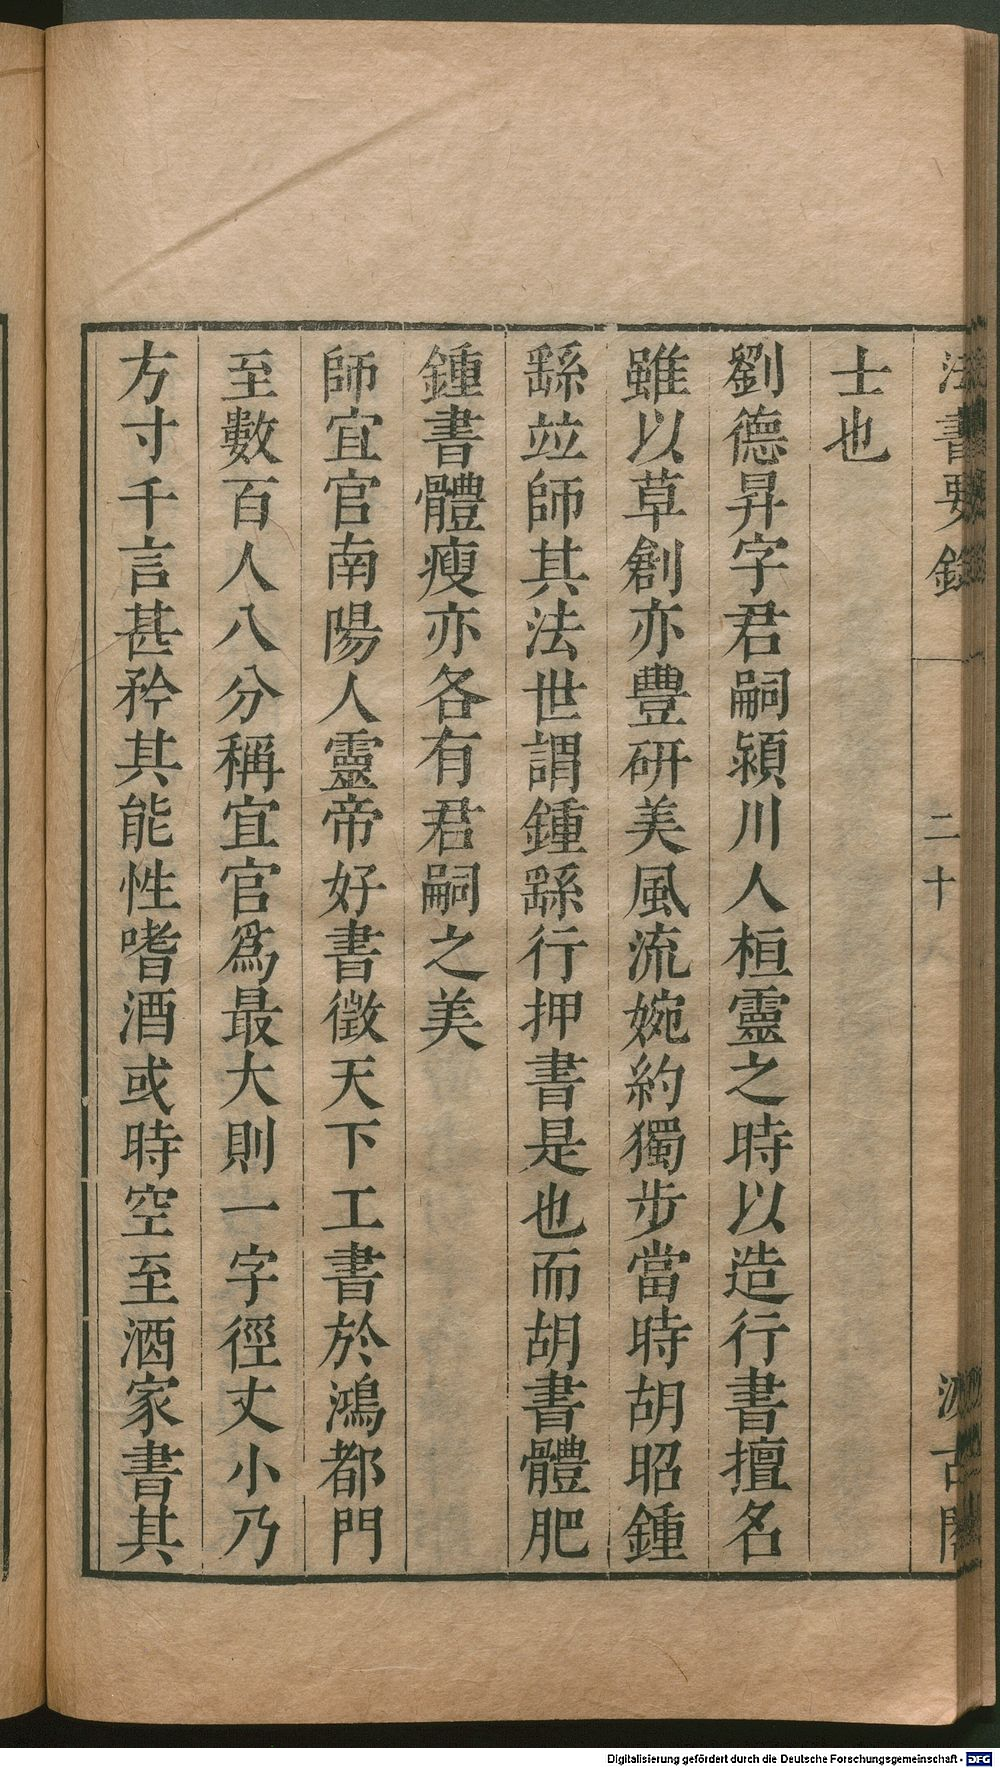 法書要錄 二十八 汲古閣
士也
劉德昇字君嗣潁川人桓靈之時以造行書擅名
雖以草創亦豐研美風流婉約獨步當時胡昭鍾
繇竝師其法世謂鍾繇行押書是也而胡書體肥
鍾書體瘦亦各有君嗣之美
師宜官南陽人靈帝好書徵天下工書於鴻都門
至數百人八分稱宜官爲最大則一字徑丈小乃
方寸千言甚矜其能性嗜酒或時空至酒家書其
Digitalisierung gefördert durch die Deutsche Forschungsgemeinschaft - DFG